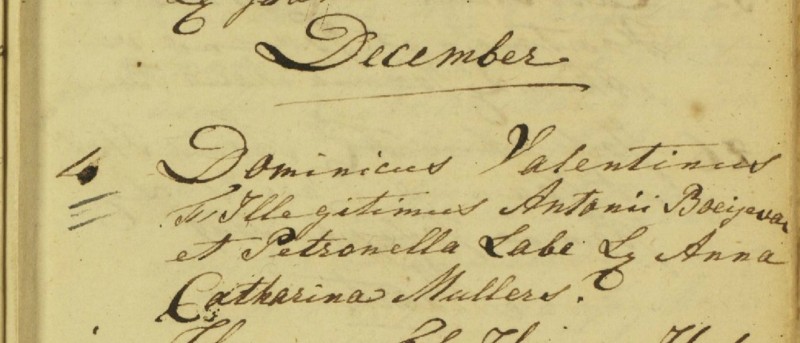 December
4 Dominicus Valentinus
F. Illegitimus Antonii Boeijeva
et Petronella Labe Lg Anna
Catharina Mullers.